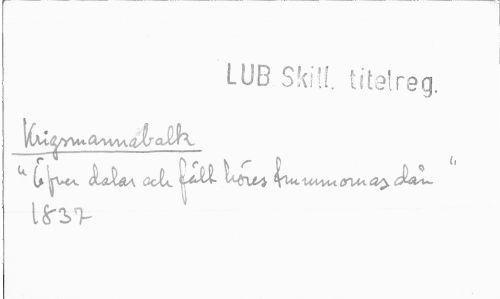 LUB Skill. titelreg.
Krigsmannabalk
"Öfver dalar och fält höres trummornas dån"
1837